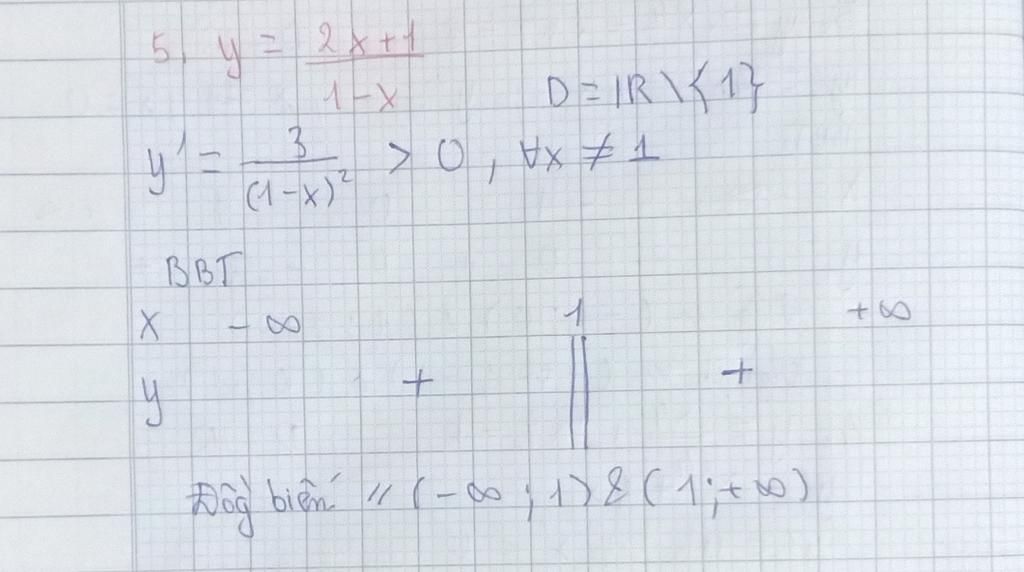 5, y = (2x+1)/(1-x)
D = ℝ \ {1}
y' = 3/(1-x)² > 0, ∀x ≠ 1
BBT
x -∞ 1 +∞
y + || +
Đồg biến // (-∞; 1) & (1; +∞)